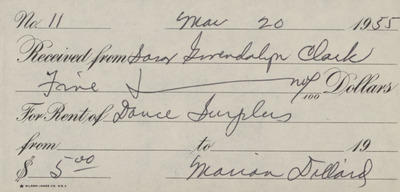 No. 11 Mar 20 1955
Received from Gwendolyn Clark
Five no/100 Dollars
For Rent of Dance Surplus
from to 19
$ 5.00 Marian Dollard
WILSON JONES CO. U.S.A.